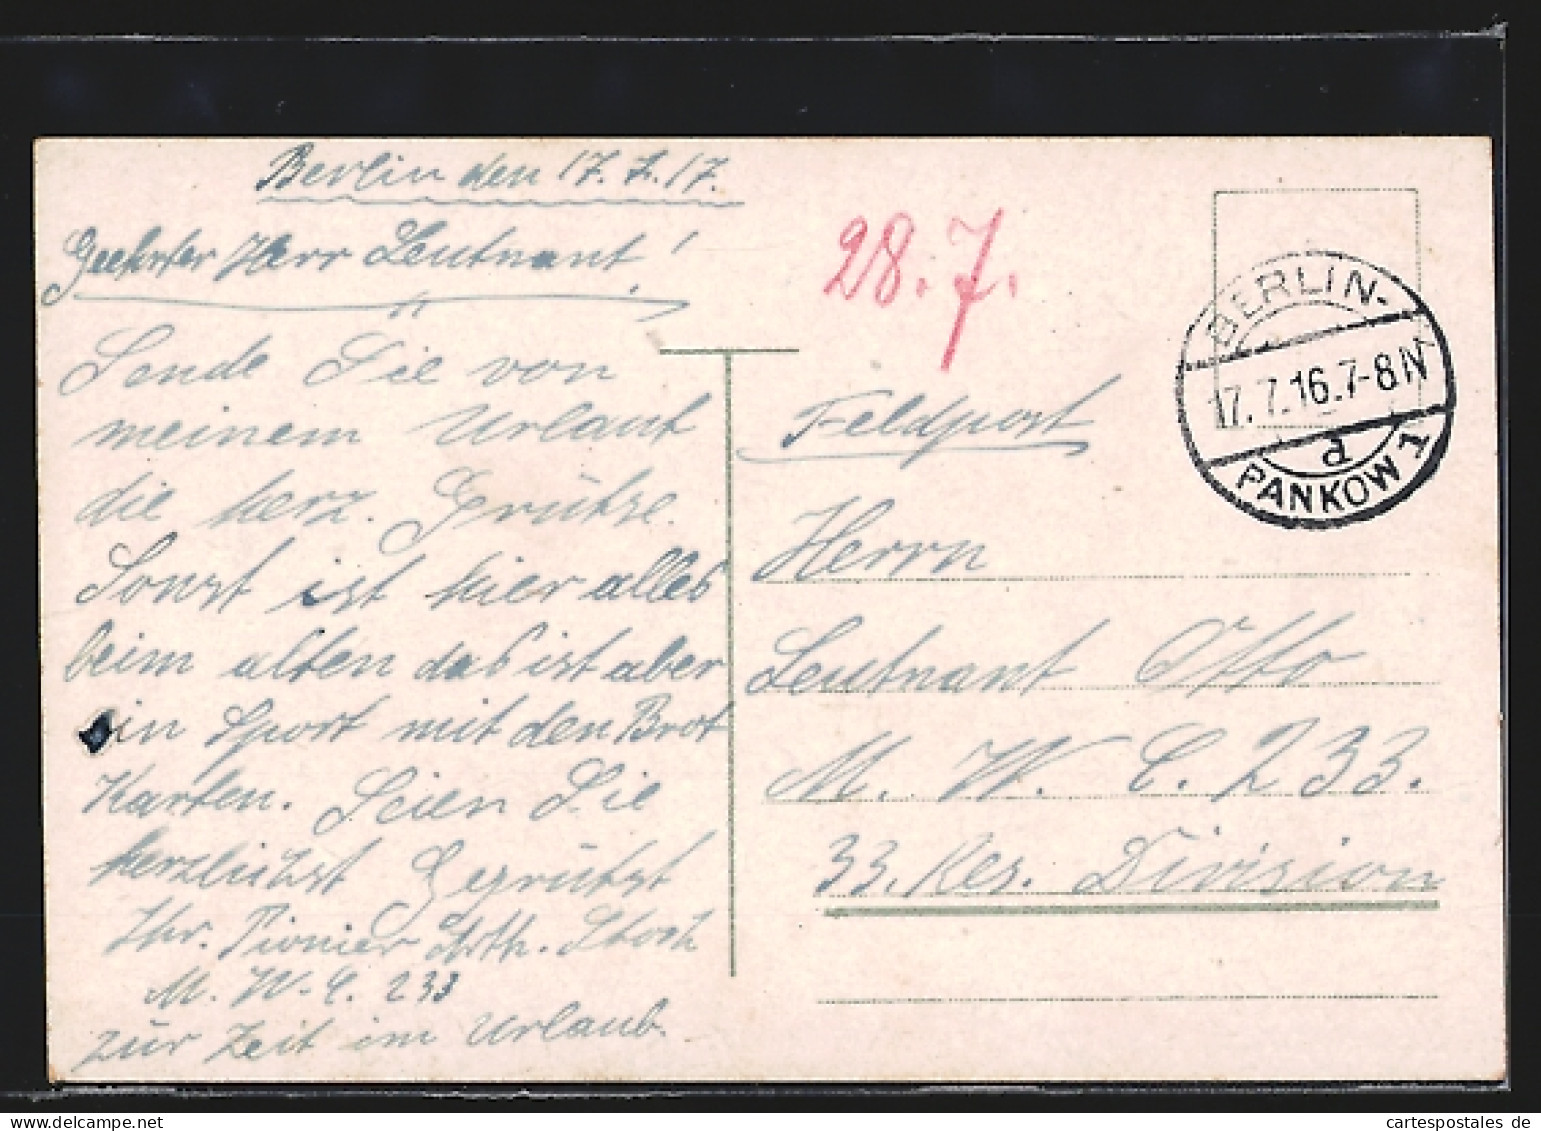 Berlin den 17.7.17.
Geehrter Herr Leutnant!
Sende Sie von
meinem Urlaub
die herz. Grütze.
Sonst ist hier alles
beim alten das ist aber
ein Sport mit den Brot
Karten. Seien Sie
herzlichst Gegrützt
Ihr. Pionier Arth. Stock
M. W. C. 233
zür Zeit im Urlaub.
28.7.
BERLIN-
17.7.16.7-8 N
a
PANKOW 1
Feldpost
Herrn
Leutnant Otto
M. W. C. 233.
33. Res. Division
cartespostales de
www.delcampe.net